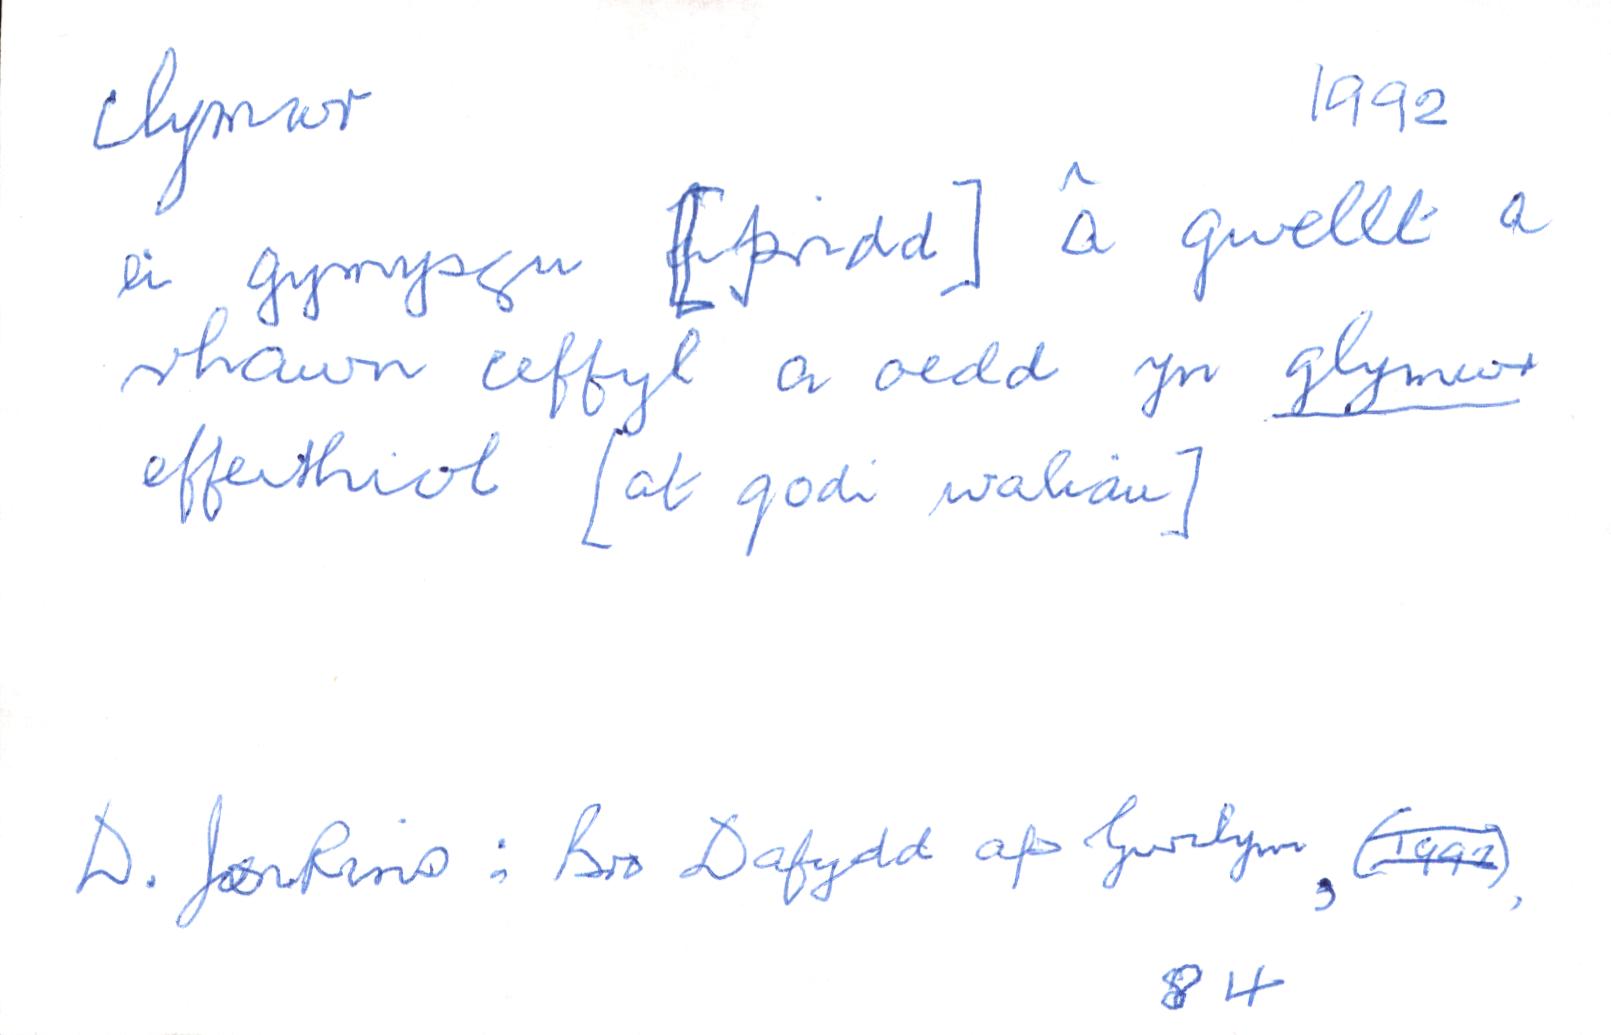 clymwr 1992
ei gymysgu [pridd] â gwellt a
rhawn ceffyl a oedd yn glymwr
effeithiol [at godi waliau]
D. Jenkins : Bro Dafydd ap Gwilym, (1992),
84